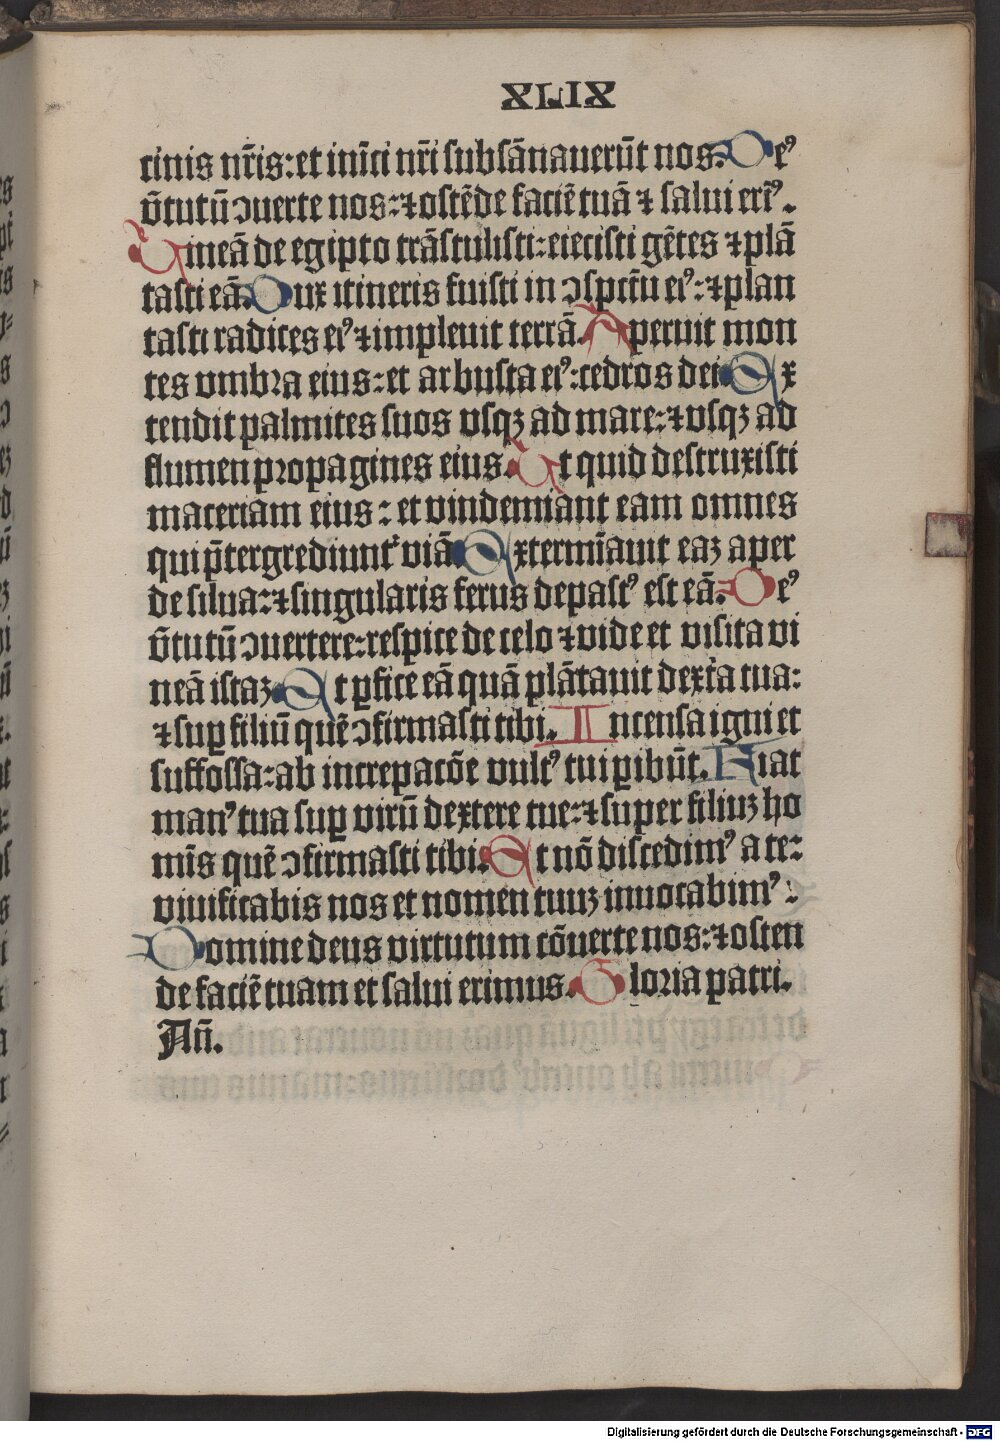 XLIX
cinis nr̄is: et inīci nr̄i subsānauerūt nos. Deꝰ
v̄tutū ꝯuerte nos: ⁊ ostēde faciē tuā ⁊ salui erīꝰ.
Uineā de egipto trāstulisti: eiecisti gētes ⁊ plā
tasti eā. Dux itineris fuisti in ꝯspc̄tu eiꝰ: ⁊ plan
tasti radices eiꝰ ⁊ impleuit terrā. Aperuit mon
tes vmbra eius: et arbusta eiꝰ: cedros dei. Ex
tendit palmites suos vsqꝫ ad mare: ⁊ vsqꝫ ad
flumen propagines eius. Ut quid destruxisti
maceriam eius: et vindemiant eam omnes
qui p̄tergrediunt᷑ viā. Extermīauit eaꝫ aper
de silua: ⁊ singularis ferus depastꝰ est eā. Deꝰ
v̄tutū ꝯuertere: respice de celo ⁊ vide et visita vi
neā istaꝫ. Et ꝑfice eā quā plātauit dext̄a tua:
⁊ suꝑ filiū quē ꝯfirmasti tibi. Incensa igni et
suffossa: ab increpacōe vultꝰ tui ꝑibūt. Fiat
manꝰ tua suꝑ virū dextere tue: ⁊ super filiuꝫ ho
mīs quē ꝯfirmasti tibi. Et nō discedimꝰ a te:
viuificabis nos et nomen tuuꝫ inuocabimꝰ:
Domine deus virtutum cōuerte nos: ⁊ osten
de faciē tuam et salui erimus. Gloria patri.
Añ.
Digitalisierung gefördert durch die Deutsche Forschungsgemeinschaft - DFG